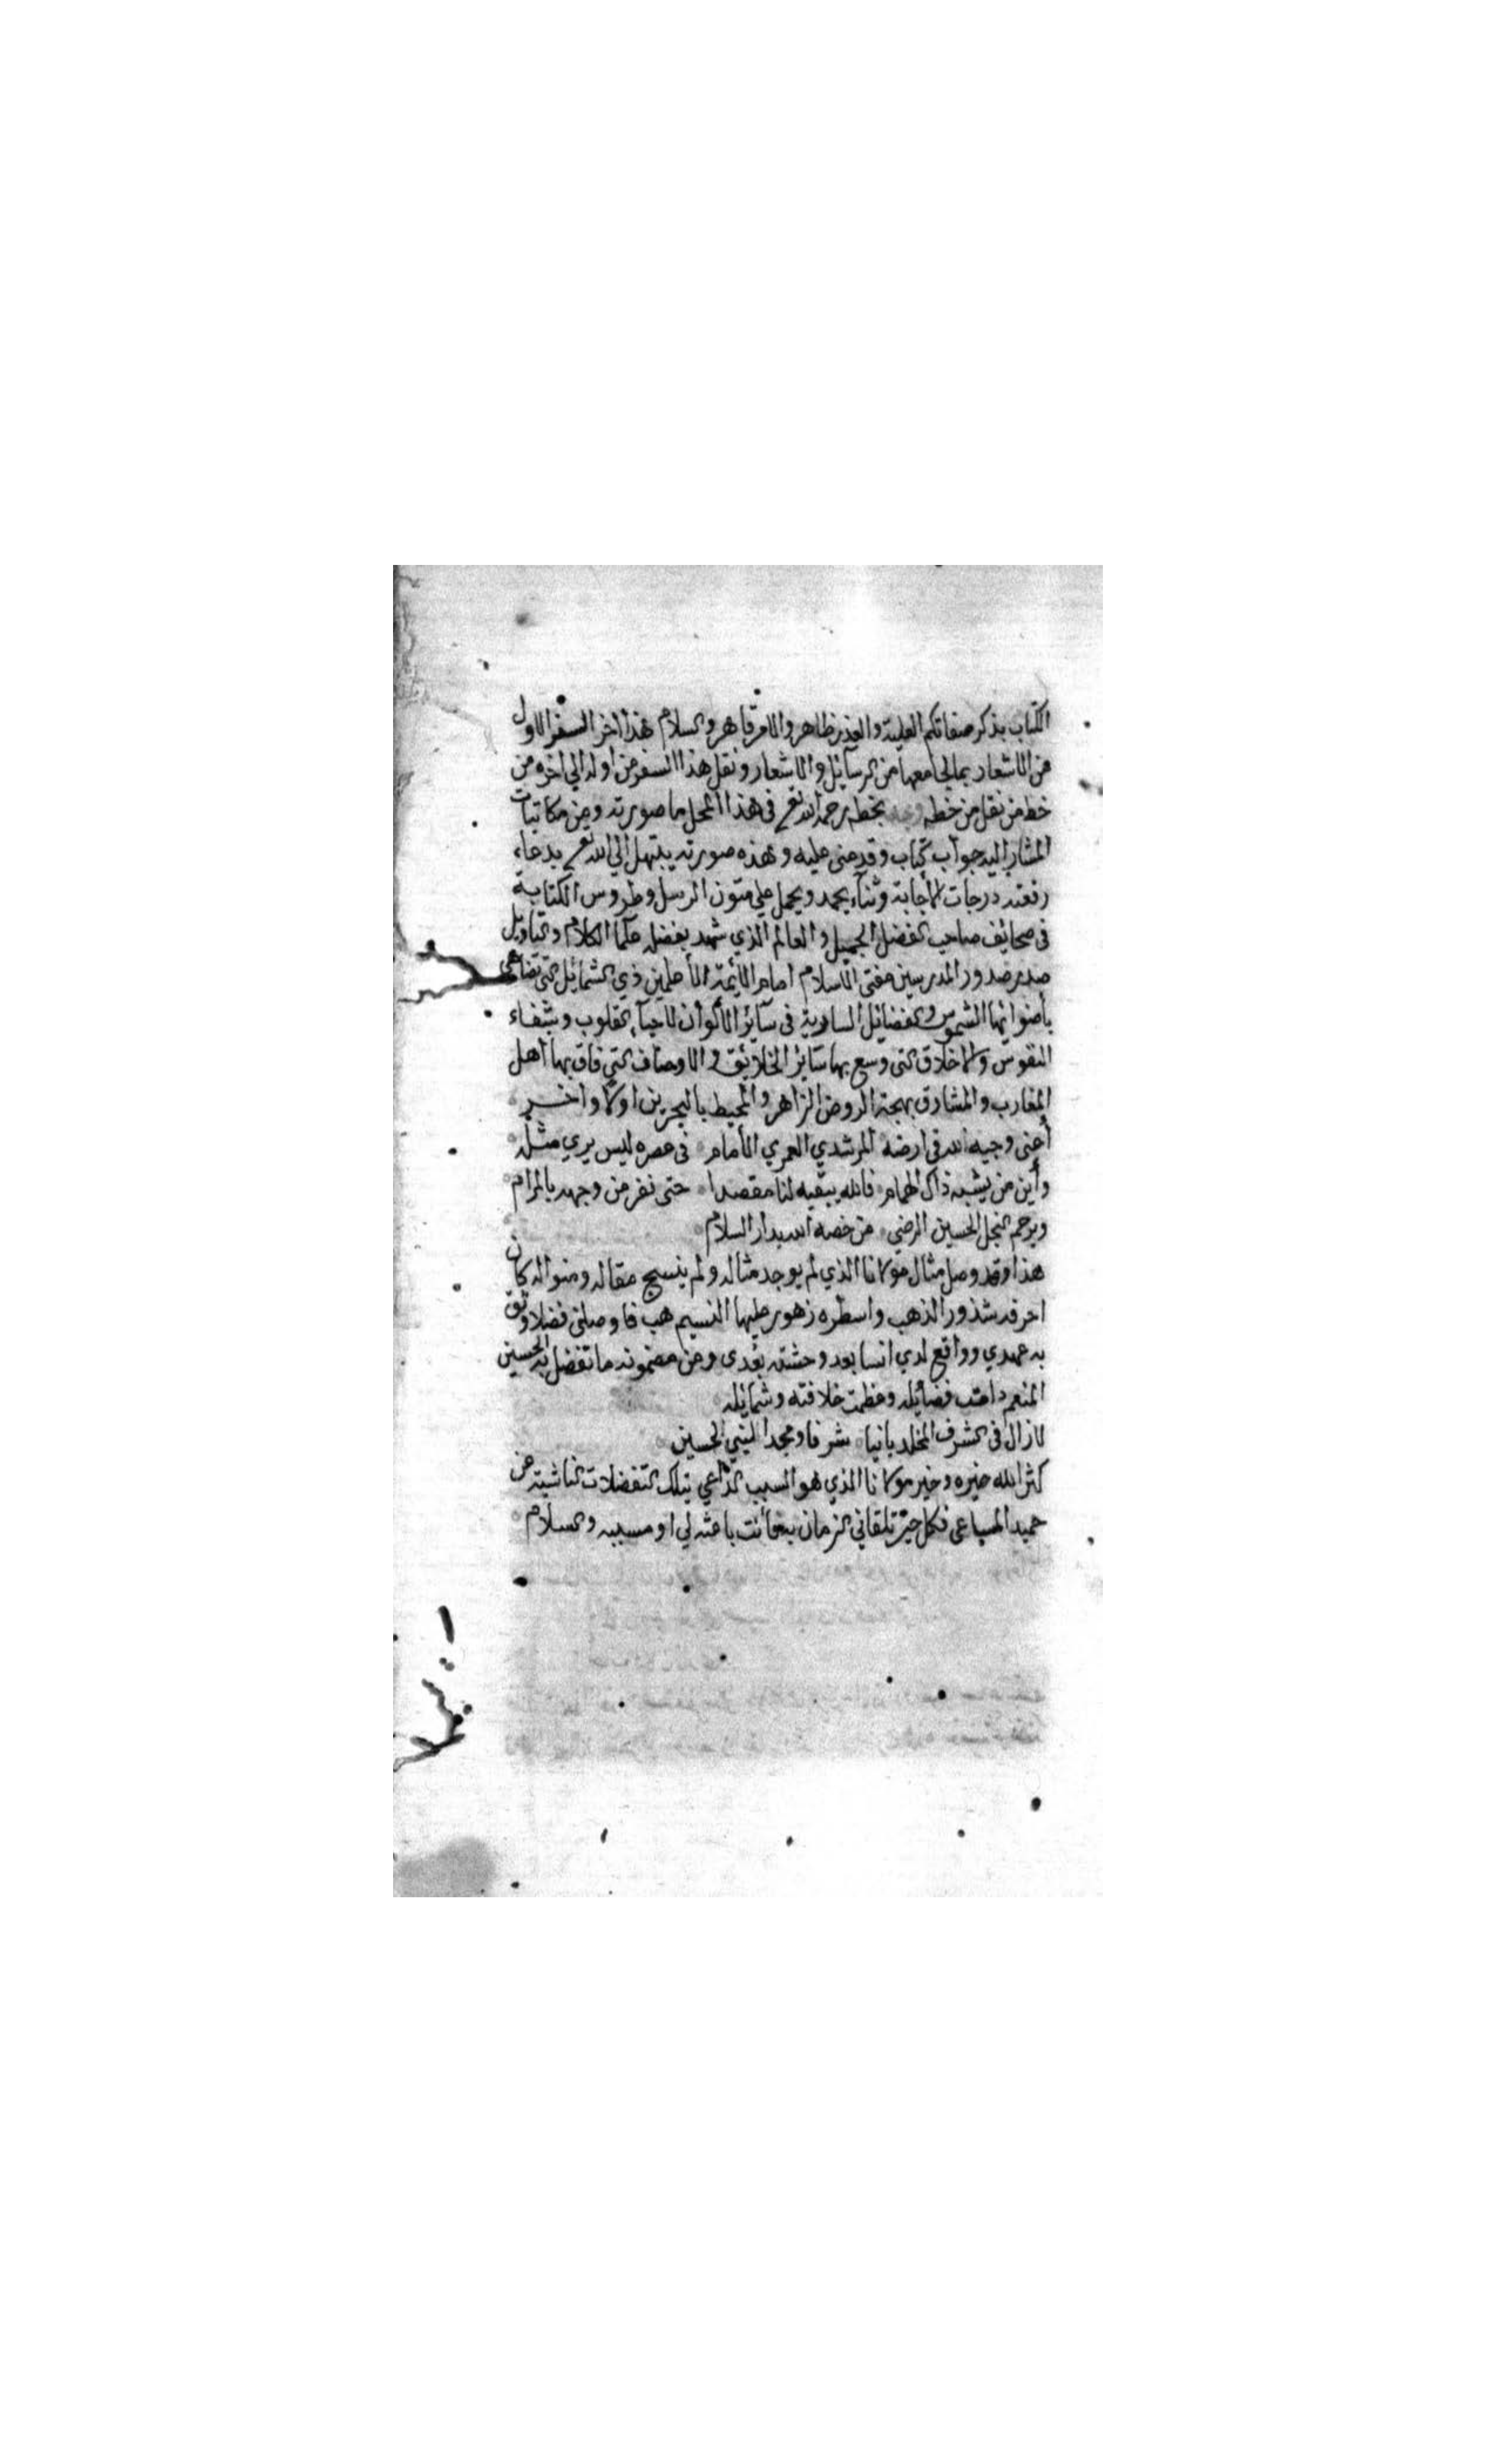 الكتاب بذكر صفاتكم العلية والعذر ظاهر والامر قاهر والسلام هذا اخر السفر الاول
من الاشعار بما لجامعها من الرسائل والاشعار ونقل هذا السفر من اوله الي اخره من
خط من نقل من خطه وجد بخطه رحمه الله تع في هذا المحل ما صورته ومن مكاتبات
المشار اليه جواب كتاب وقد مني عليه وهذه صورته يبتهل الي الله تع بدعاء
رفعته درجات الاجابة وثناء يحمد ويحمل علي متون الرسل وطروس الكتابة
في صحائف صاحب الفضل الجميل والعالم الذي شهد بفضله علما الكلام والتاويل
صدر صدور المدرسين مفتي الاسلام امام الأيمة الأعلمين ذي الشمائل التي تضاهي
بأضوائها الشموس والفضائل السارية في سائر الألوان لاحيآء القلوب وشفاء
النفوس والاخلاق التي وسع بها سائر الخلائق والاوصاف التي فاق بها اهل
المغارب والمشارق بهجة الروض الزاهر والمحيط بالبحرين اولا واخر
أعني وجيه الله في ارضه المرشدي العمري الأمام في عصره ليس يري مثله
وأين من يشبه ذاك الهمام فالله يبقيه لنا مقصدا حتي نفز من وجهه بالمرام
ويرحم النجل الحسين الرضي من خصه الله بدار السلام
هذا وقد وصل مثال مولانا الذي لم يوجد مثاله ولم ينسج مقاله ومنواله كان
احرفه شذور الذهب واسطره زهور عليها النسيم هب فاوصلني فضلا وثق
به عهدي وواقع لدي انسا بعد وحشته بعدي ومن مضمونه ما تفضل به الحسين
المنعم دامت فضائله وعظمت خلافته وشمائله
لازال في الشرف المخلد بانيا شرفا ومجدا لبني الحسين
كثر الله خيره وخير مولانا الذي هو السبب الداعي بتلك التفضلات الناشية عن
حميد المساعي فكل خير تلقاني الزمان به فأنت باعثه لي او مسببه والسلام